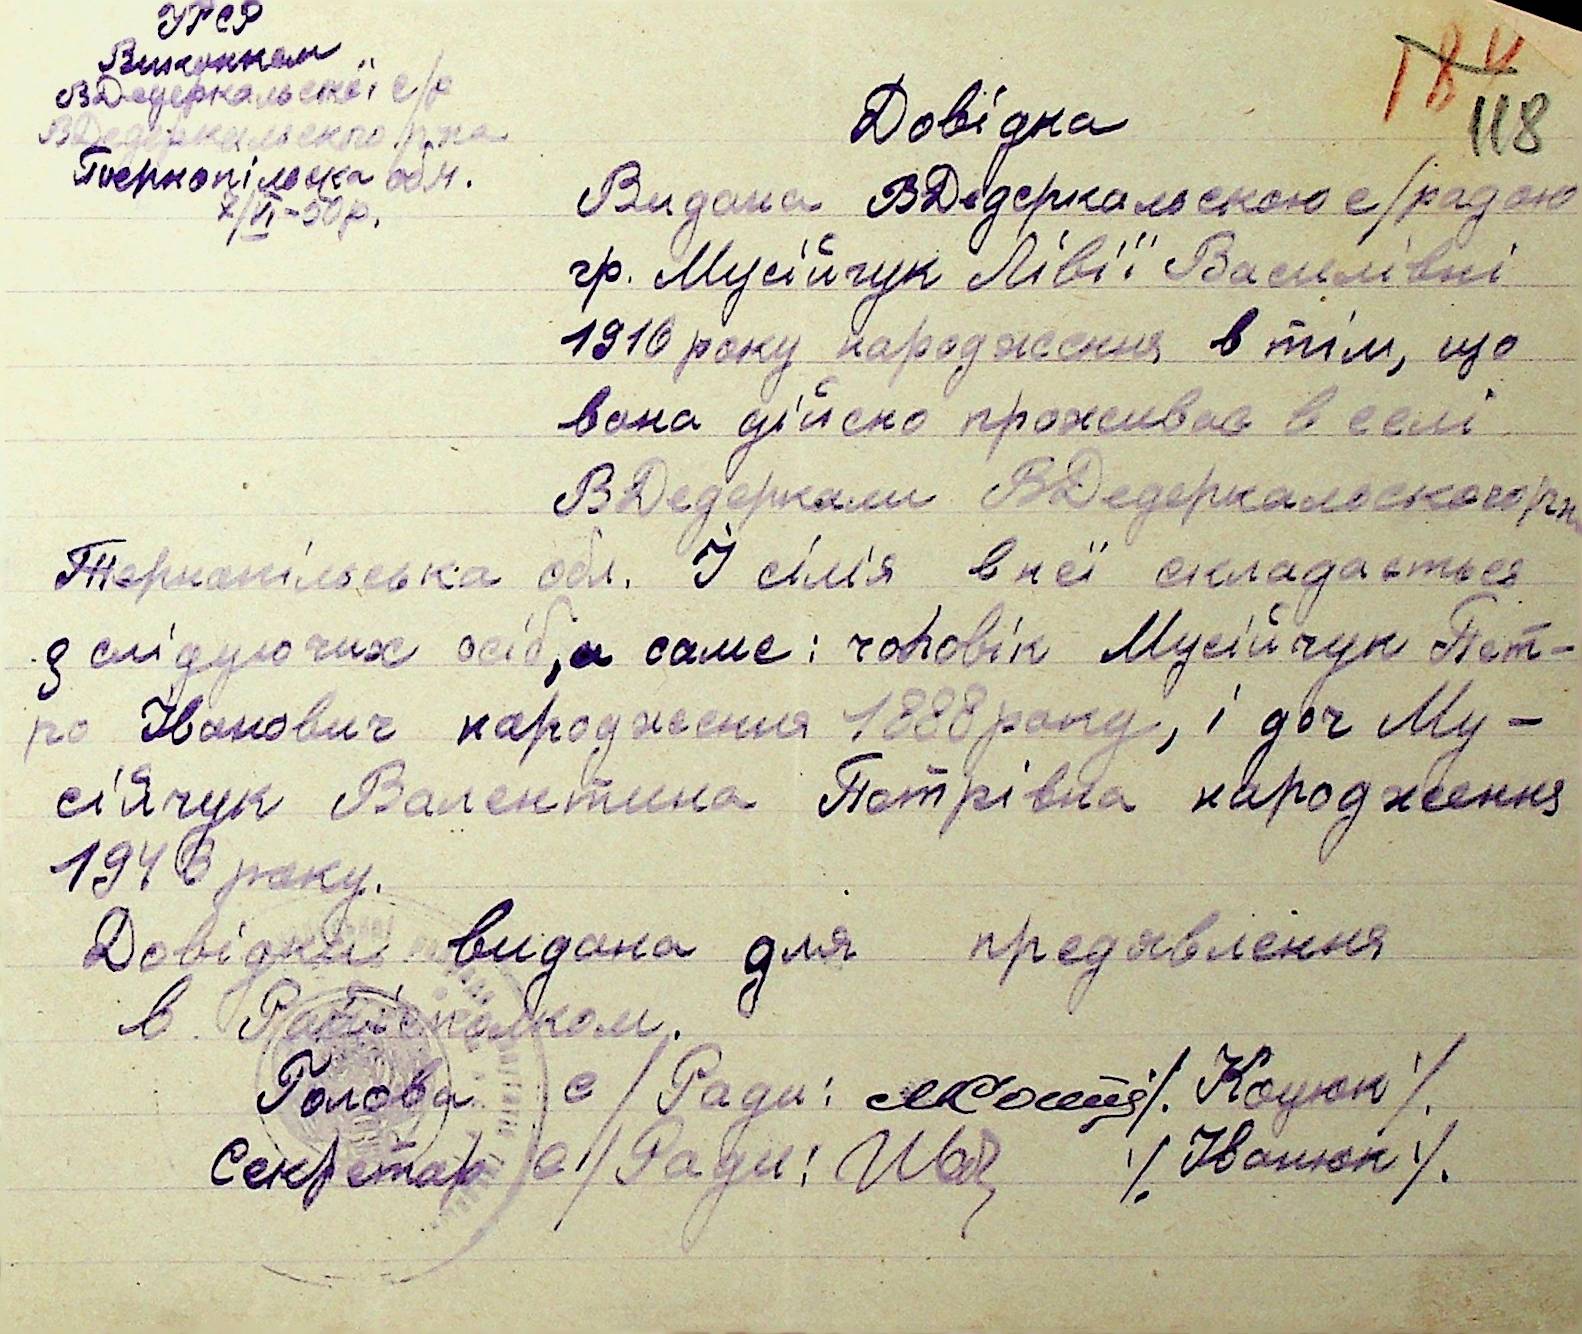 УРСР
Виконком
ВДедеркальської с/р
ВДедеркальського р-на
Тернопільська обл.
7/VI-50р.
118
Довідка
Видана ВДедеркальською с/радою
гр. Мусійчук Лівії Василівні
1916 року народження в тім, що
вона дійсно проживає в селі
ВДедеркали ВДедеркальского р-н
Тернопільська обл. І сімія в неї складається
з слідуючих осіб, а саме: чоловік Мусійчук Пет-
ро Іванович народження 1888 року, і доч Му-
сійчук Валентина Петрівна народження
1943 року.
Довідка видана для предявлення
в Райвіконком.
Голова с/Ради: /. Коцюк /.
Секретар с/Ради: /. Іванюк /.